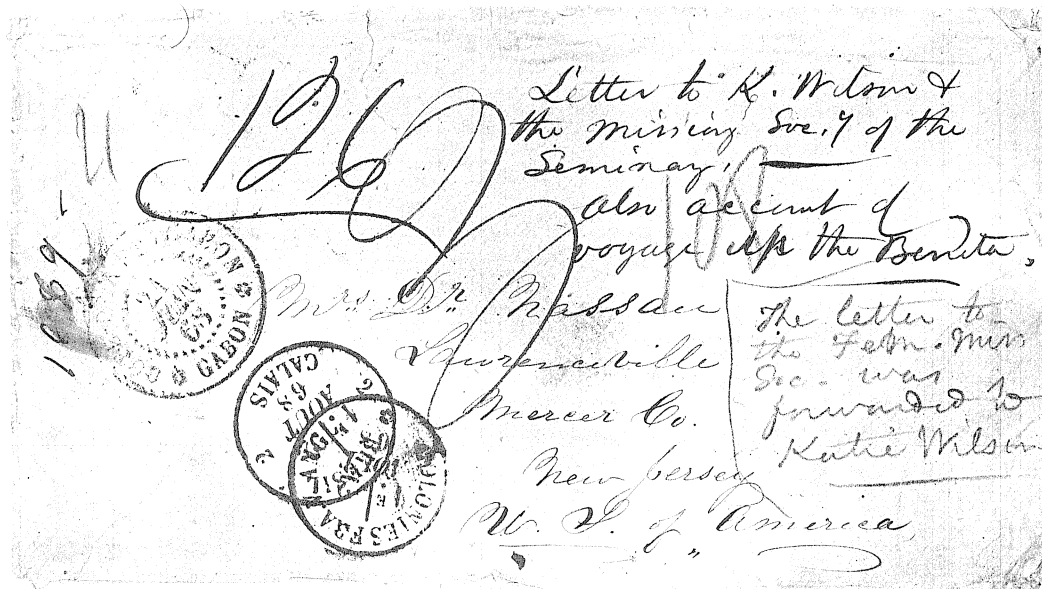 Letter to K. Wilson &
the Missiny Soc.y of the
Seminary,
also account of
voyage up the Benita.
126
Mrs Dr. Nassau
Lawrenceville
Mercer Co.
New Jersey
U. S. of America
The letter to
the Fem. Miss
Soc. was
forwarded to
Katie Wilson
GABON
21
JUIN
68
2
AOUT
68
CALAIS
2
COLONIES FRA
BRÉSIL